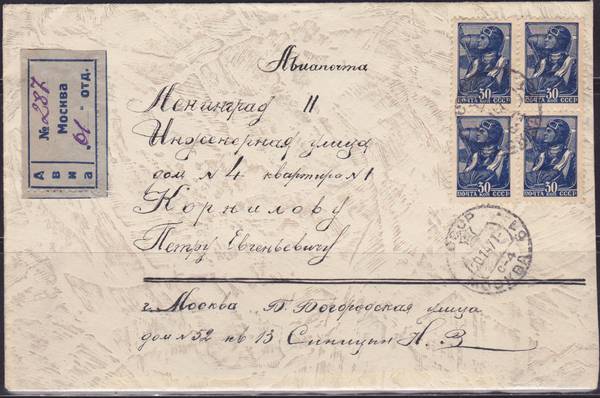 Авиапочта
№ 287
Москва
61 - отд.
Авиа
Ленинград 11
Инженерная улица
дом № 4 квартира № 1
Корнилову
Петру Евгеньевичу
г. Москва Б. Богородская улица
дом № 52 кв 13 Синицин Н. З
30 30
ПОЧТА КОП СССР ПОЧТА КОП СССР
30 30
ПОЧТА КОП СССР ПОЧТА КОП СССР
МОСКВА